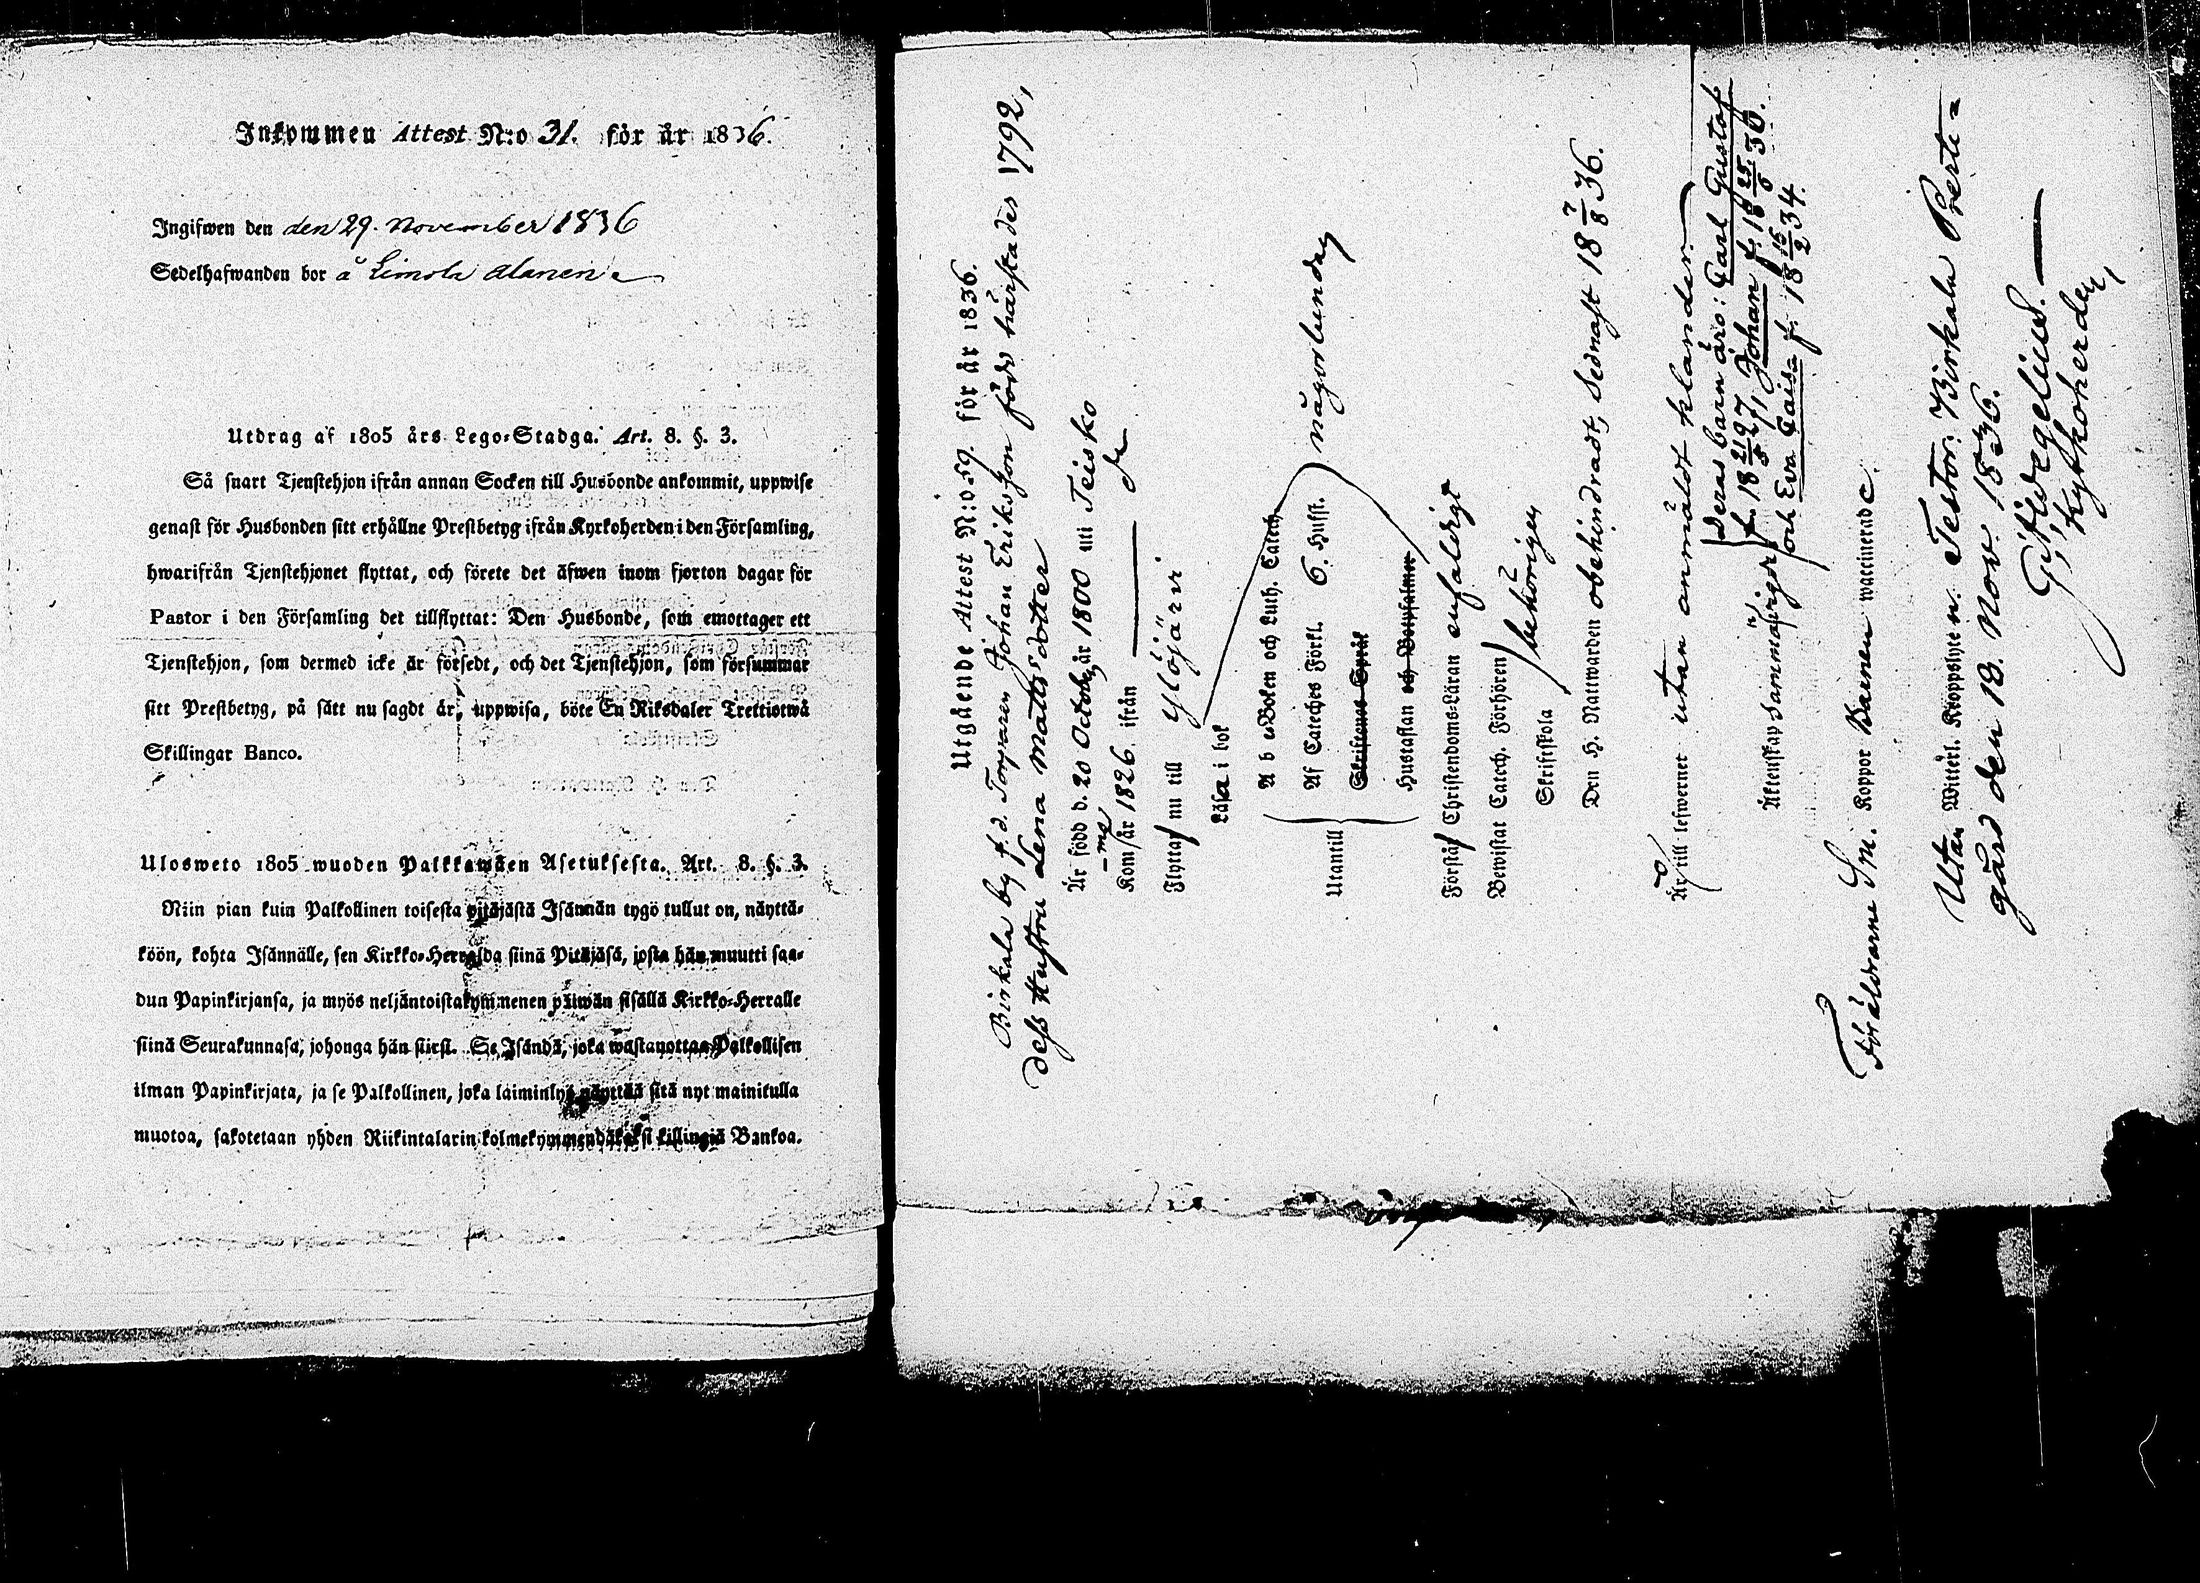 Inkommen Attest N:o 31. för år 1836.
Ingifwen den den 29. November 1836
Sedelhafwanden bor å Simola Alanen
Utdrag af 1805 års Lego-Stadga. Art. 8. §. 3.
Så snart Tjenstehjon ifrån annan Socken till Husbonde ankommit, uppwise
genast för Husbonden sitt erhållne Prestbetyg ifrån Kyrkoherden i den Församling,
hwarifrån Tjenstehjonet flyttat, och förete det äfwen inom fjorton dagar för
Pastor i den Församling det tillflyttat: Den Husbonde, som emottager ett
Tjenstehjon, som dermed icke är försedt, och det Tjenstehjon, som försummar
sitt Prestbetyg, på sätt nu sagdt är, uppwisa, böte En Riksdaler Trettiotwå
Skillingar Banco.
Ulosweto 1805 wuoden Palkkawäen Asetuksesta. Art. 8. §. 3.
Niin pian kuin Palkollinen toisesta pitäjästä Isännän tygö tullut on, näyttä-
köön, kohta Isännälle, sen Kirkko-Herralda siinä Pitäjäsä, josta hän muutti saa-
dun Papinkirjansa, ja myös neljäntoistakymmenen päiwän sisällä Kirkko-Herralle
siinä Seurakunnasa, johonga hän siirsi. Se Isändä, joka wastanottaa Palkollisen
ilman Papinkirjata, ja se Palkollinen, joka laiminlyö näyttää sitä nyt mainitulla
muotoa, sakotetaan yhden Riikintalarin kolmekymmendäkaksi killingiä Bankoa.
Utgående Attest N:o 59. för år 1836.
Birkala by f.d. Torparen Johan Eriksson född härstädes 1792,
dess Hustru Lena Mattsdotter
Är född d. 20 October år 1800 uti Teisko
Kom år 1826 ifrån — d:o
Flyttar nu till Ylöjärvi
Läsa i bok
A b c Boken och Luth. Catech.
Utantill Af Cateches Förkl. 6. Hufst. någorlunda
Skriftenes Språk
Hustaflan och Botpsalmer
Förstå Christendoms-Läran enfaldigt
Bewistat Catech. Förhören
Skriftskola behörigen
Den H. Nattwarden obehindradt, sednast 18 7/8 36.
Är till lefwernet utan anmäldt klander.
Deras barn äro: Carl Gustaf
f. 18 21/5 27, Johan f. 18 25/6 30.
Äktenskap sammanwigde och Eva Caisa f. 18 15/2 34.
Föräldrarne Sm. Koppor Barnen waccinerade.
Utan Witterl. Kroppslyte m. Testor; Birkala Preste-
gård den 18. Nov. 1836.
G: Hvegelius.
Kyrkoherde